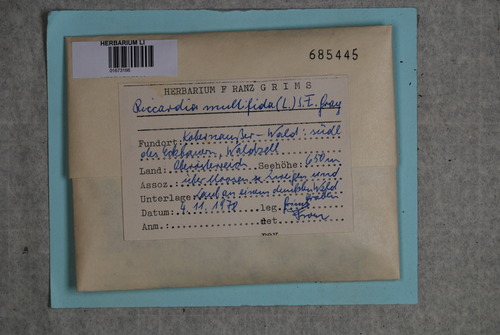 HERBARIUM LI
685445
HERBARIUM FRANZ GRIMS
Riccardia multifida (L.) S.F. Gray
Fundort: Kobernaußer-Wald: südl
des, Waldzell
Land: Oberösterreich Seehöhe: 650m
Assoz. über Moosen u. Zweigen und
Unterlage: Sand an einem dunklen Wald
Datum: 4.11.1978 leg. graben
Anm.: det. Grims
rev.